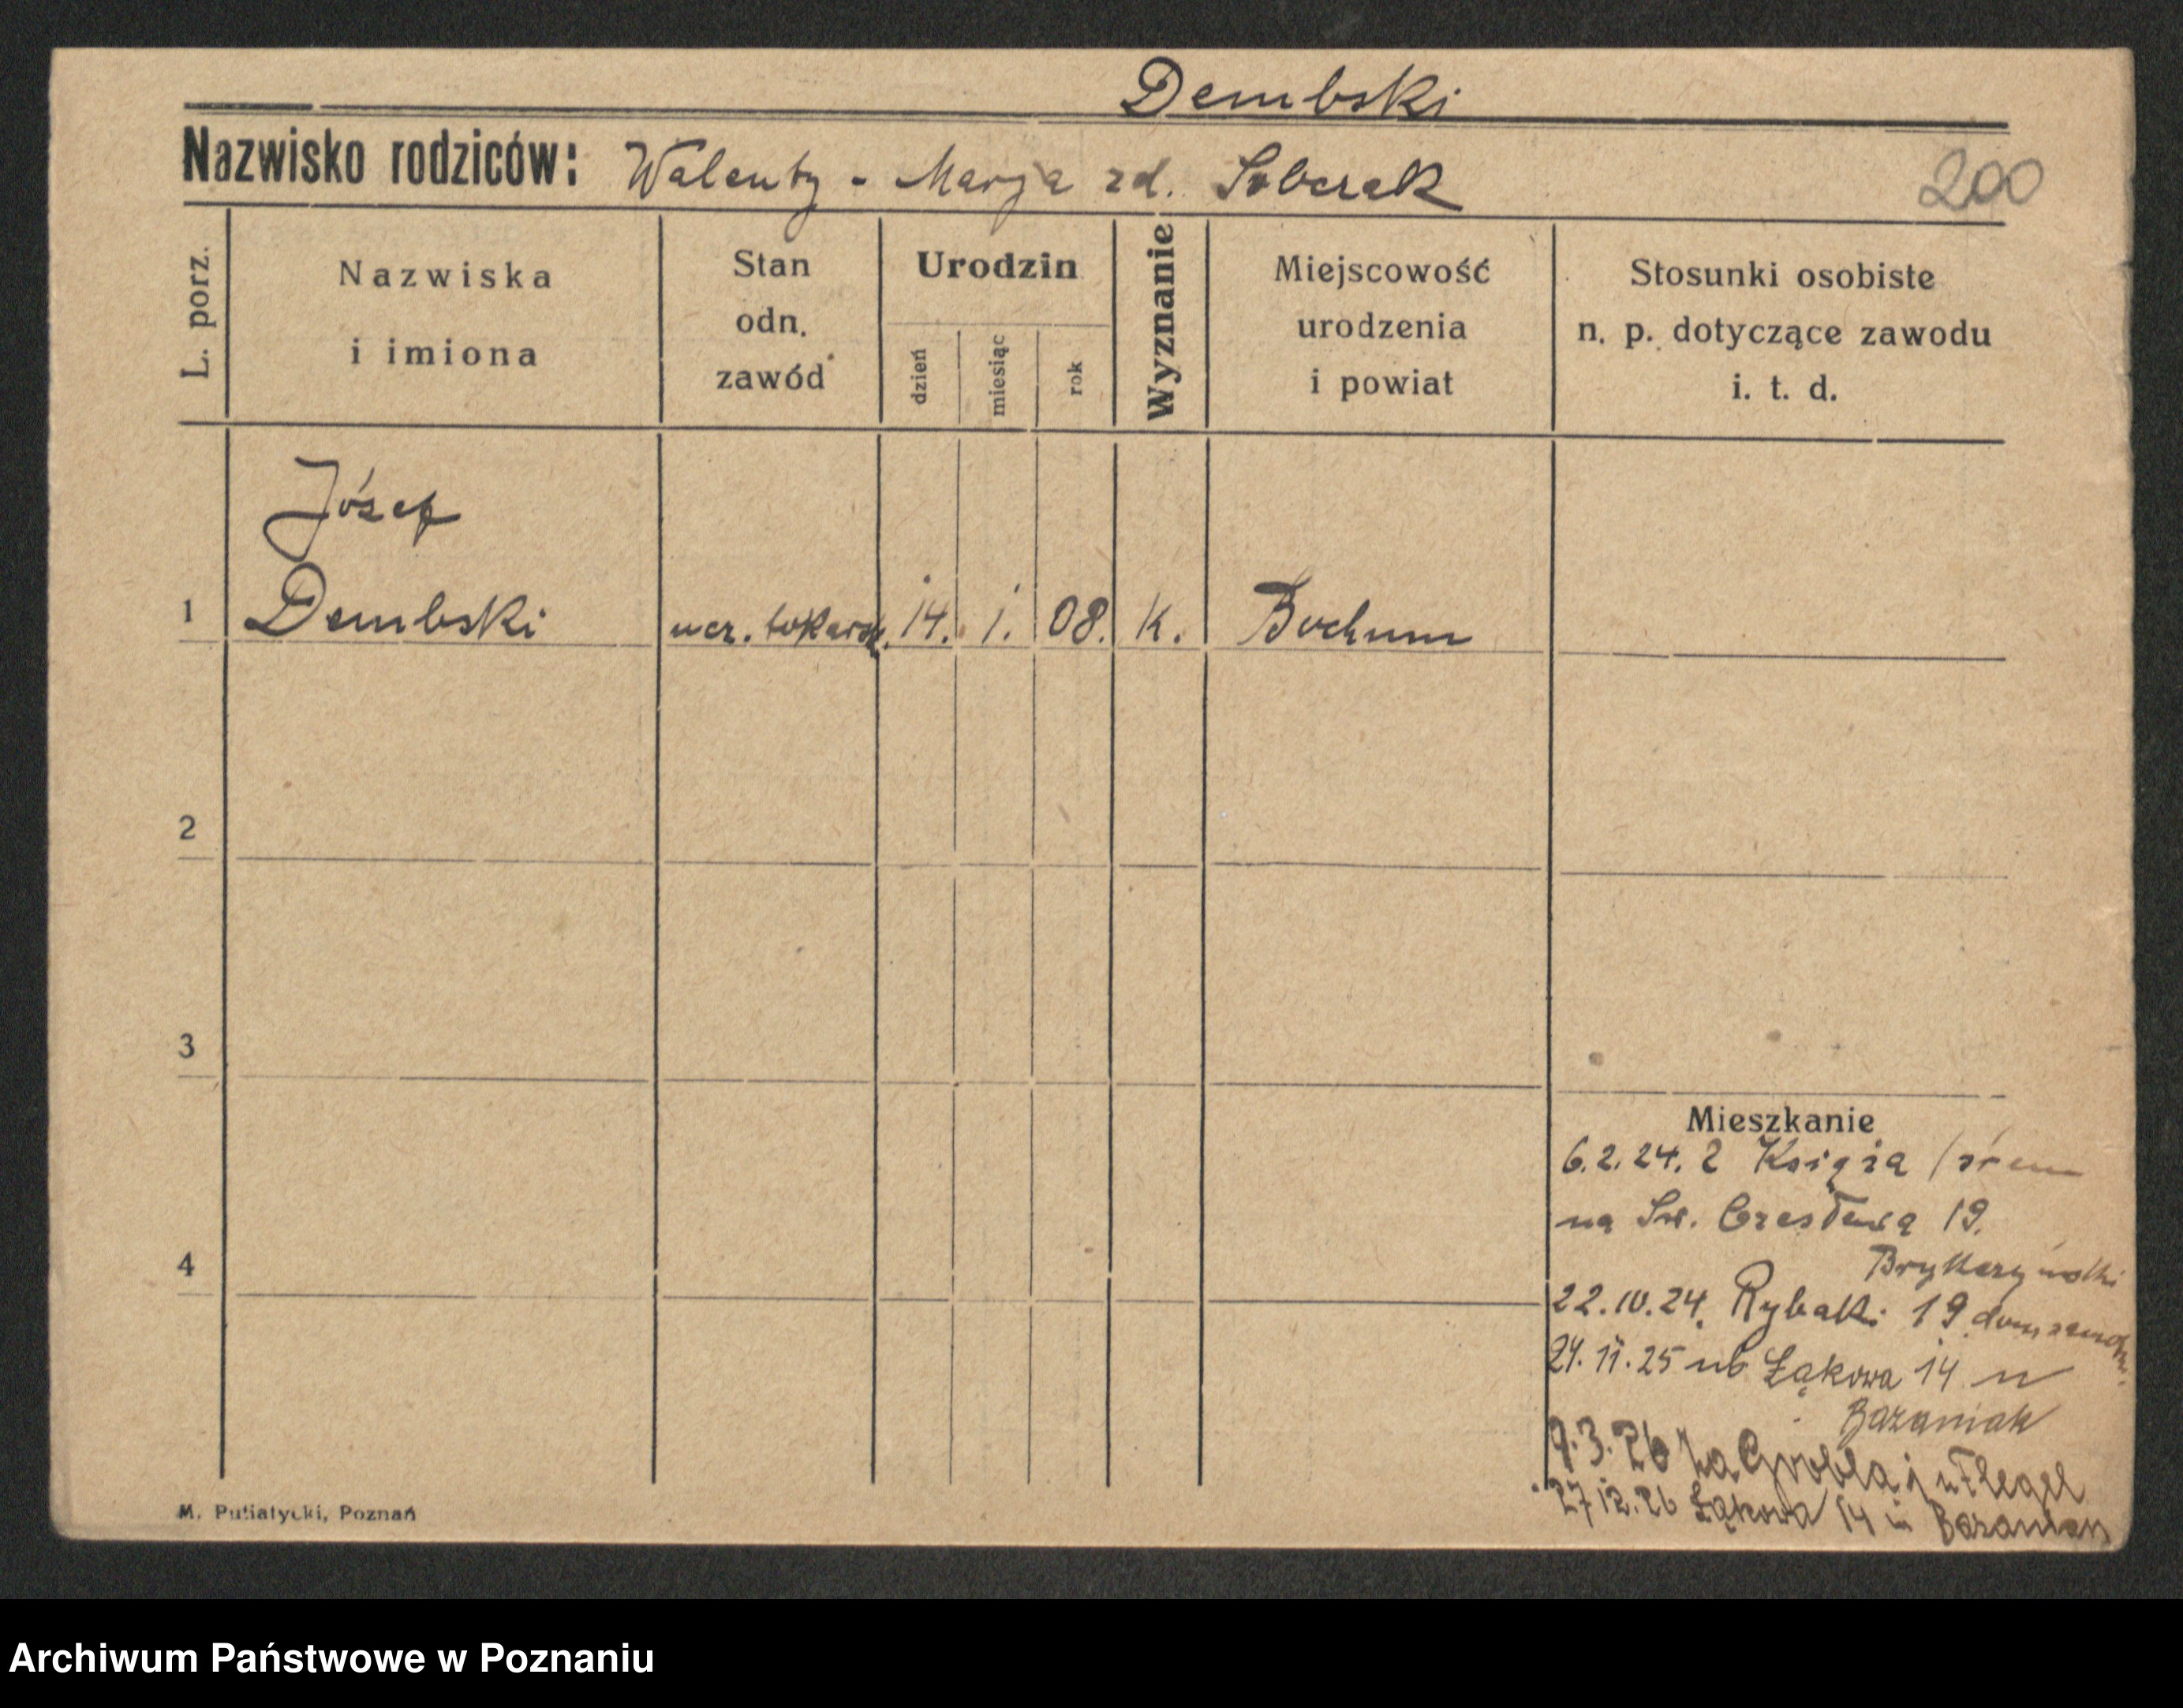 Dembski
Nazwisko rodziców: Walenty - Marja zd. Sobczak
200
L. porz.
Nazwiska
i imiona
Stan
odn.
zawód
Urodzin
dzień
miesiąc
rok
Wyznanie
Miejscowość
urodzenia
i powiat
Stosunki osobiste
n. p. dotyczące zawodu
i. t. d.
Józef
1 Dembski ucz. tokarsk. 14. 1. 08. K. Bochum
2
3
4
Mieszkanie
6.2.24. z Książa / śrem
na Św. Czesława 19.
22.10.24. Rybaki 19
24.11.25 Łąkowa 14 u
Bazaniak
9.3.26 Za Groblą 1 u Flegel
27 12.26 Łąkowa 14 u Bazaniak
M. Putiatycki, Poznań
Archiwum Państwowe w Poznaniu